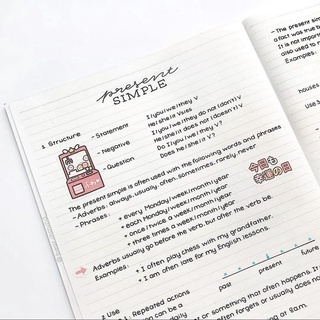 present
SIMPLE
1. Structure
- Statement
I | you | we | they V
He | she | it Vs | es
- Negative
I | you | we | they do not (don't) V
He | she | it does not (doesn't) V
- Question
Do I | you | we | they V?
Does he | she | it V?
The present simple is often used with the following words and phrases
- Adverbs: always, usually, often, sometimes, rarely, never
- Phrases:
+ every Monday | week | month | year
+ each Monday | week | month | year
+ once | twice a week | month | year
+ three times a week | month | year
Adverbs usually go before the verb but after the verb be.
Examples:
+ I often play chess with my grandfather.
+ I am often late for my English lessons.
past
present
future
2. Use
: Repeated actions
or something that often happens. It
often forgets or usually does
- The present sim
a fact was true b
It is not importan
also used to
Examples:
houses
Use